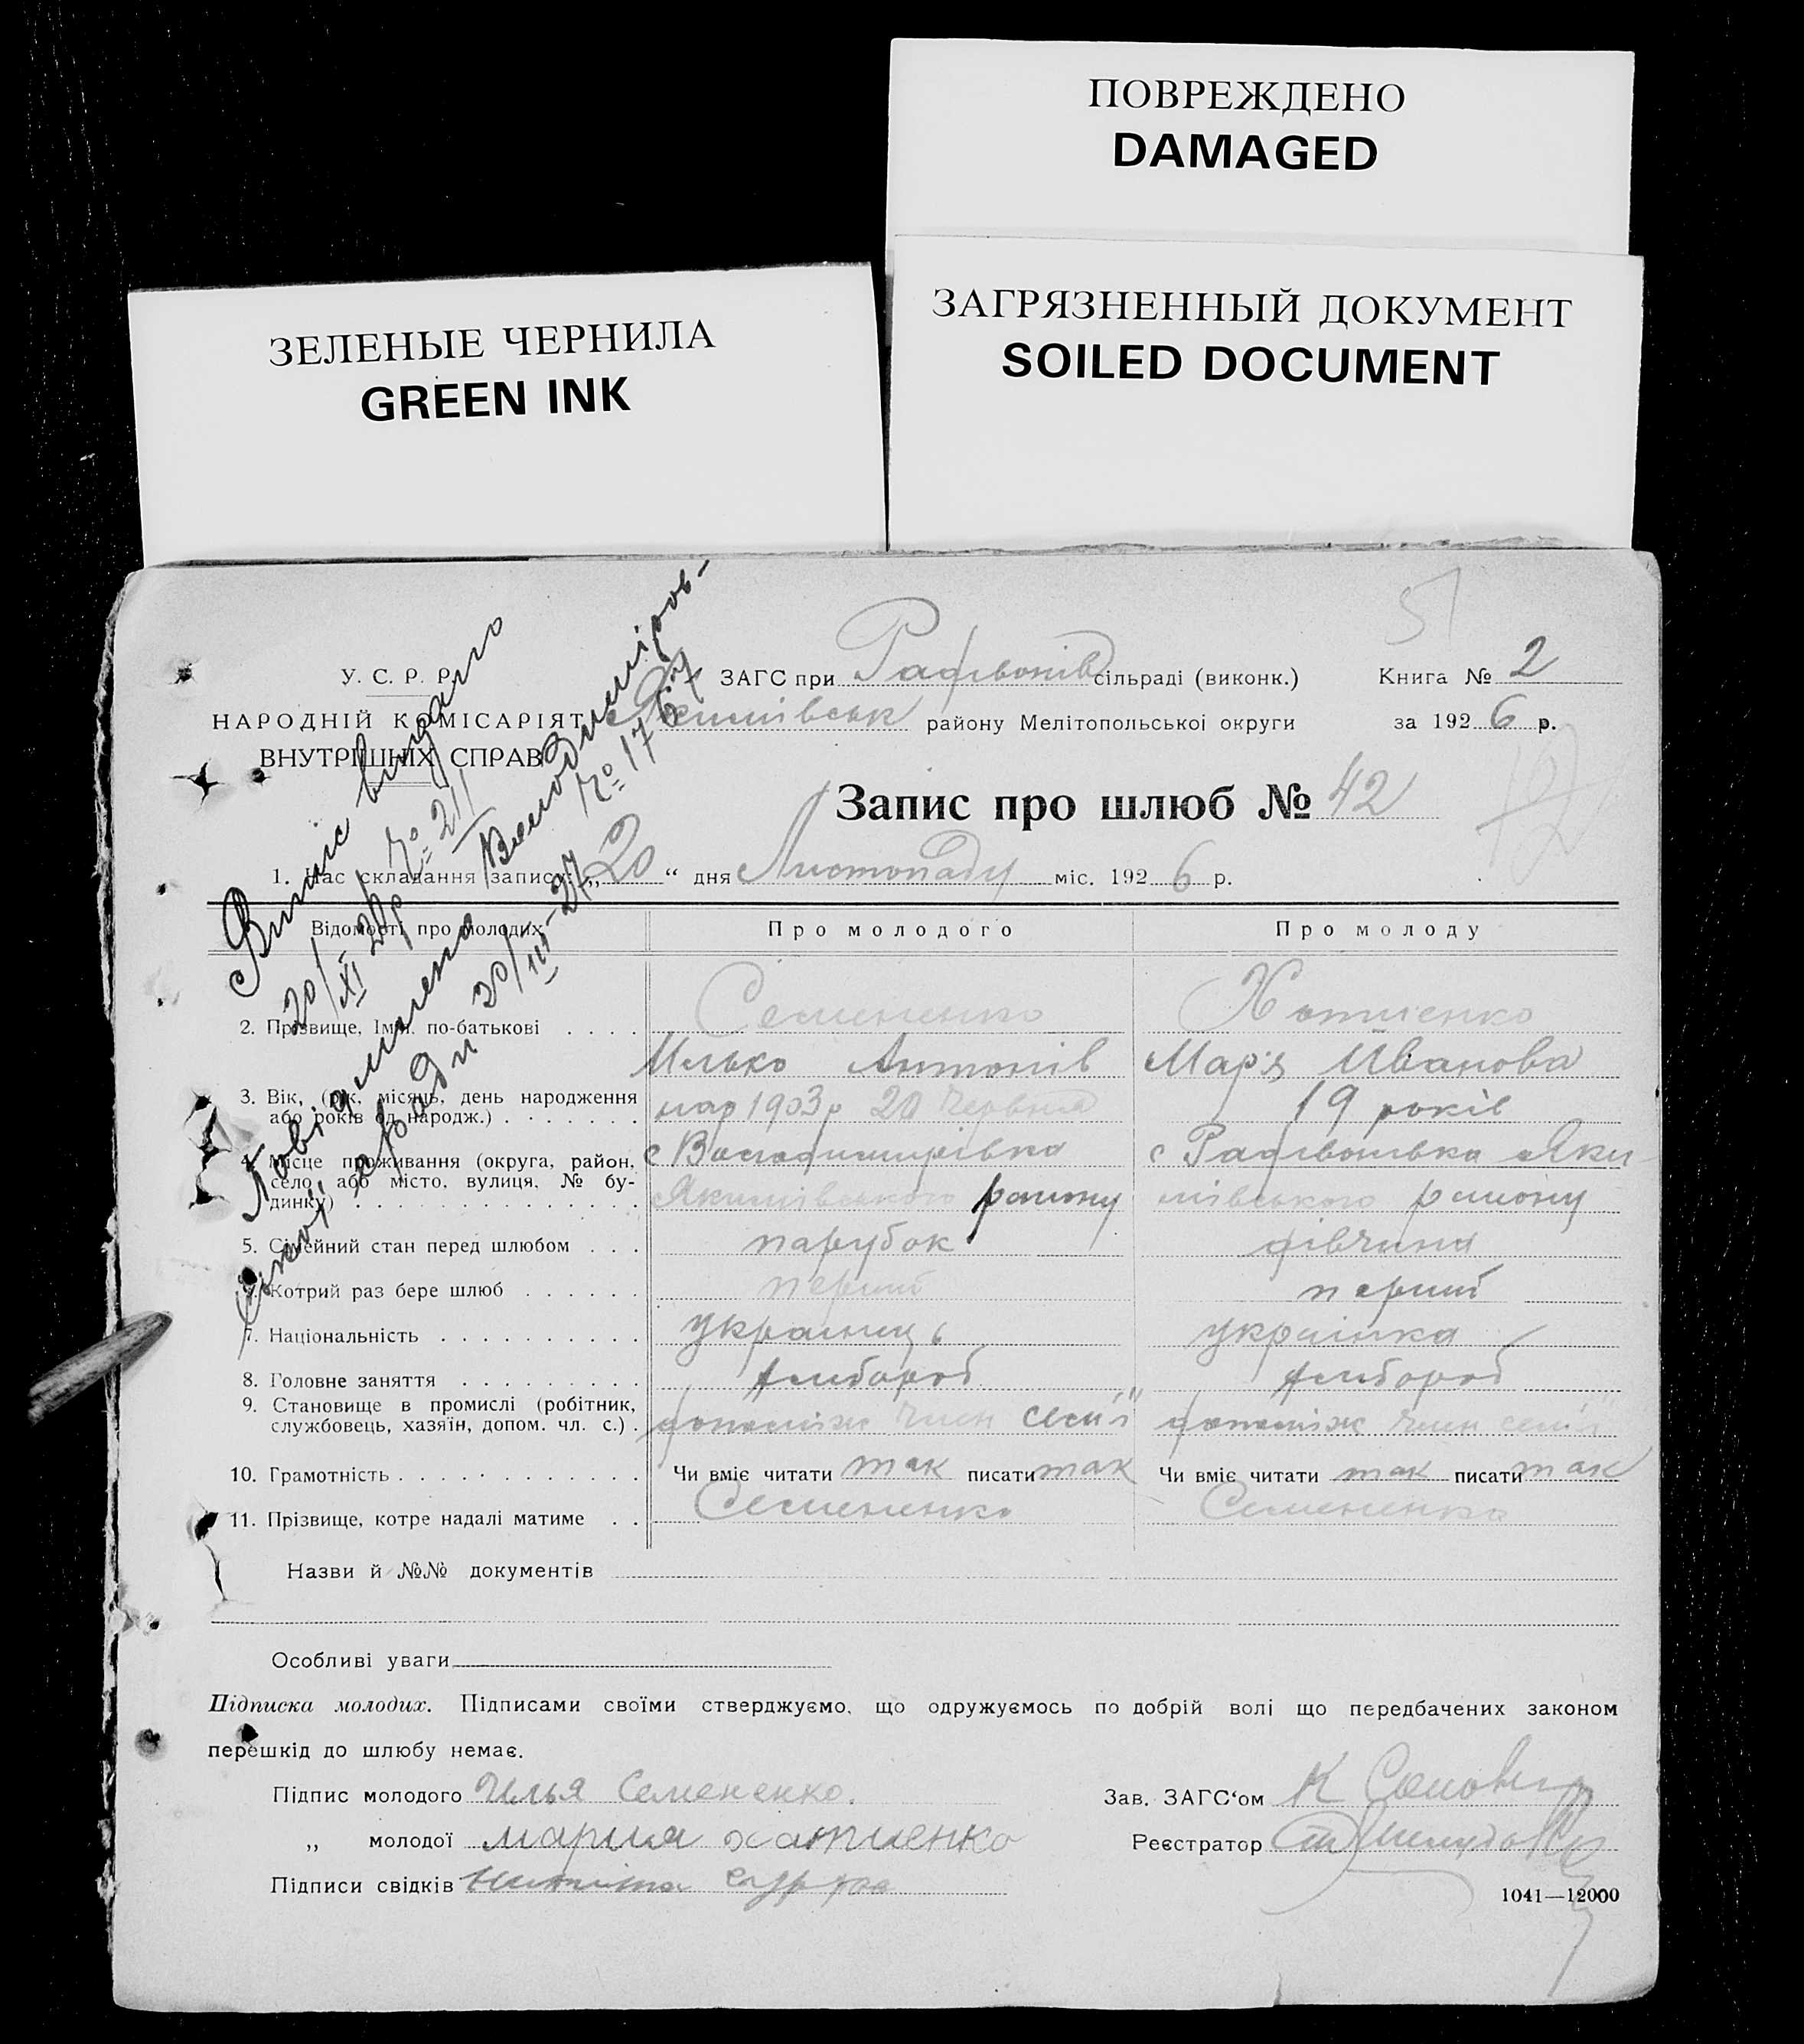 ПОВРЕЖДЕНО
DAMAGED
ЗЕЛЕНЫЕ ЧЕРНИЛА
GREEN INK
ЗАГРЯЗНЕННЫЙ ДОКУМЕНТ
SOILED DOCUMENT
У. С. Р. Р.
НАРОДНІЙ КОМІСАРІЯТ
ВНУТРІШНІХ СПРАВ
ЗАГС при сільраді (виконк.)
Книга № 2
району Мелітопольської округи
за 1926 р.
Випис видано
20/XI 26р № 211
Повідомлено Володимирів-
ській с/раді 30/III-27 № 1767
Запис про шлюб № 42
1. Час складання запису: „20“ дня Листопаду міс. 1926 р.
Відомості про молодих
Про молодого
Про молоду
2. Прізвище, Імя, по-батькові . . . .
Семененко
Хатиенко
Илько Антонів
Мар'я Иванова
3. Вік, (рік, місяць, день народження
або років од народж.) . . . . . . .
нар 1903 р 20 червня
19 років
4. Місце проживання (округа, район,
село, або місто, вулиця, № бу-
динку) . . . . . . . . . . . . . .
с Володимирівка
Якимівського району
с Яки-
мівського району
5. Сімейний стан перед шлюбом . . .
парубок
дівчина
6. Котрий раз бере шлюб . . . . . .
перший
перший
7. Національність . . . . . . . . . .
українець
українка
8. Головне заняття . . . . . . . . .
хлібороб
хлібороб
9. Становище в промислі (робітник,
службовець, хазяїн, допом. чл. с.) .
допоміж член семі'ї
допоміж член семі'ї
10. Грамотність . . . . . . . . . . . .
Чи вміє читати так писати так
Чи вміє читати так писати так
11. Прізвище, котре надалі матиме . .
Семененко
Семененко
Назви й №№ документів
Особливі уваги
Підписка молодих. Підписами своїми стверджуємо, що одружуємось по добрій волі що передбачених законом
перешкід до шлюбу немає.
Підпис молодого Илья Семененко.
Зав. ЗАГС‘ом
„ молодої Мария Хатиенко
Реєстратор
Підписи свідків
1041—12000